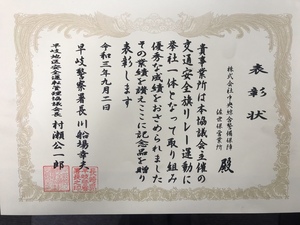 表彰状
株式会社中央綜合警備保障
佐世保営業所
殿
貴事業所は本協議会主催の
交通安全旗リレー運動に
挙社一体となって取り組み
優秀な成績をおさめられました
その業績を讃えここに記念品を贈り
表彰します
令和三年九月二日
早岐警察署長 川船場幸夫
早岐地区安全運転管理協議会長 村瀬公一郎